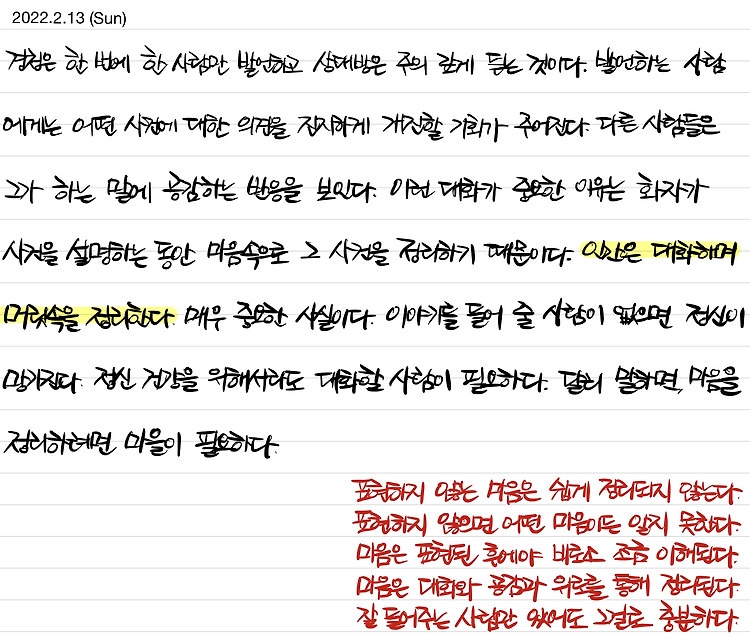 2022.2.13 (Sun)
경청은 한 번에 한 사람만 발언하고 상대방은 주의 깊게 듣는 것이다. 발언하는 사람
에게는 어떤 사건에 대한 의견을 진지하게 개진할 기회가 주어진다. 다른 사람들은
그가 하는 말에 공감하는 반응을 보인다. 이런 대화가 중요한 이유는 화자가
사건을 설명하는 동안 마음속으로 그 사건을 정리하기 때문이다. 인간은 대화하며
머릿속을 정리한다. 매우 중요한 사실이다. 이야기를 들어 줄 사람이 없으면 정신이
망가진다. 정신 건강을 위해서라도 대화할 사람이 필요하다. 달리 말하면, 마음을
정리하려면 마을이 필요하다.
표현하지 않는 마음은 쉽게 정리되지 않는다.
표현하지 않으면 어떤 마음이든 알지 못한다.
마음은 표현된 후에야 비로소 조금 이해된다.
마음은 대화와 공감과 위로를 통해 정리된다.
잘 들어주는 사람만 있어도 그걸로 충분하다.